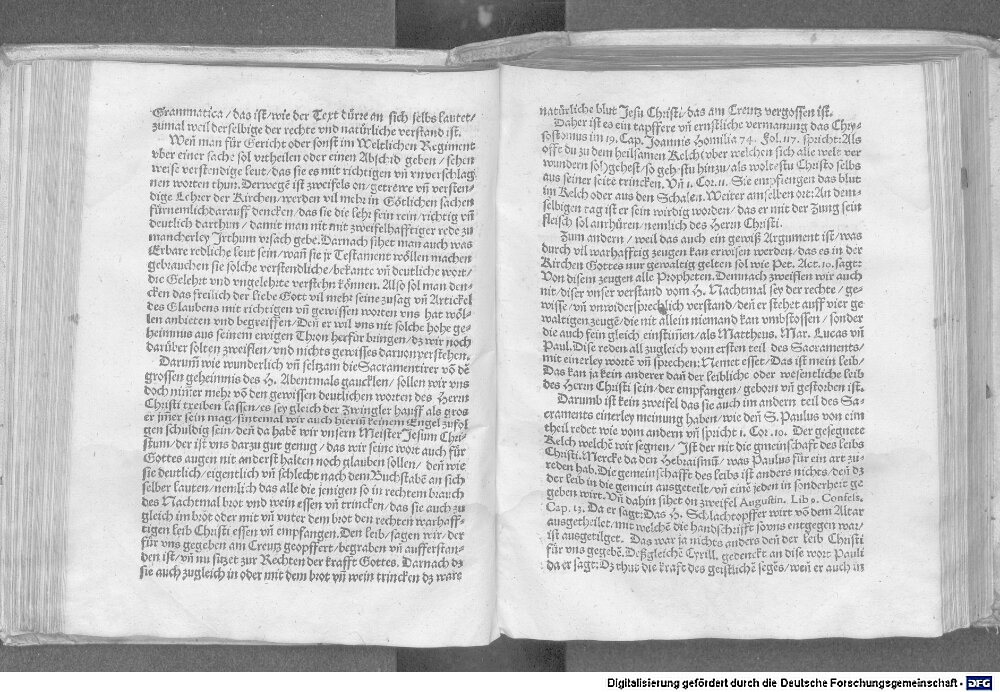 Grammatica / das ist / wie der Text dürre an sich selbs lautet /
zumal weil derselbige der rechte vnd natürliche verstand ist.
Weñ man für Gericht oder sonst im Weltlichen Regiment
vber einer sache sol vrtheilen oder einen Abschid geben / sehen
weise verstendige leut / das sie es mit richtigen vñ vnverschlag
nen worten thun. Derwegē ist zweifels on / getrewe vñ versten-
dige Lehrer der Kirchen / werden vil mehr in Götlichen sachen
fürnemlich darauff dencken / das sie die lehr fein rein / richtig vñ
deutlich darthun / damit man nit mit zweifelhafftiger rede zu
mancherley Irthum vrsach gebe. Darnach sihet man auch was
Erbare redliche leut sein / wañ sie jr Testament wöllen machen
gebrauchen sie solche verstendliche / bekante vñ deutliche wort /
die Gelehrt vnd vngelehrte verstehn können. Also sol man den-
cken das freilich der liebe Gott vil mehr seine zusag vñ Artickel
des Glaubens mit richtigen vñ gewissen worten vns hat wöl-
len anbieten vnd begreiffen / Deñ er wil vns nit solche hohe ge-
heimnus aus seinem ewigen Thron herfür bringen / dz wir noch
darüber solten zweiflen / vnd nichts gewisses daruon verstehen.
Darum̃ wie wunderlich vñ seltzam die Sacramentirer vō dē
grossen geheimnis des H. Abentmals gaucklen / sollen wir vns
doch nim̃er mehr vō den gewissen deutlichen worten des Herrn
Christi treiben lassen / es sey gleich der Zwingler hauff als gros
er jm̃er sein mag / sintemal wir auch hierin keinem Engel zufol
gen schuldig sein / deñ da habē wir vnsern Meister Jesum Chri-
stum / der ist vns darzu gut genug / das wir seine wort auch für
Gottes augen nit anderst halten noch glauben sollen / deñ wie
sie deutlich / eigentlich vñ schlecht nach dem Buchstabē an sich
selber lauten / nemlich das alle die jenigen so in rechtem brauch
des Nachtmal brot vnd wein essen vñ trincken / das sie auch zu
gleich im brot oder mit vñ vnter dem brot den rechten warhaff-
tigen leib Christi essen vñ empfangen. Den leib / sagen wir / der
für vns gegeben am Creutz geopffert / begraben vñ aufferstan-
den ist / vñ nu sitzet zur Rechten der krafft Gottes. Darnach dz
sie auch zugleich in oder mit dem brot vñ wein trincken dz ware
natürliche blut Jesu Christi / das am Creutz vergossen ist.
Daher ist es ein tapffere vñ ernstliche vermanung das Chry-
sostomus im 19. Cap. Joannis Homilia 74. Fol. 117. spricht: Als
offt du zu dem heilsamen Kelch (vber welchen sich alle welt ver
wundern sol) gehest / so geh stu hinzu / als woltestu Christo selbs
aus seiner seite trincken. Vñ 1. Cor. 11. Sie empfiengen das blut
im Kelch oder aus den Schalen. Weiter am selben ort: An dem-
selbigen tag ist er sein wirdig worden / das er mit der Zung sein
fleisch sol anrhüren / nemlich des Herrn Christi.
Zum andern / weil das auch ein gewiß Argument ist / was
durch vil warhafftig zeugen kan erwisen werden / das es in der
Kirchen Gottes nur gewaltig gelten sol wie Pet. Act. 10. sagt:
Von disem zeugen alle Propheten. Demnach zweiflen wir auch
nit / diser vnser verstand vom H. Nachtmal sey der rechte / ge-
wisse / vñ vnwidersprechlich verstand / deñ er stehet auff vier ge
waltigen zeugē / die nit allein niemand kan vmbstossen / sonder
die auch fein gleich einstim̃en / als Mattheus. Mar. Lucas vñ
Paul. Dise reden all zugleich vom ersten teil des Sacraments /
mit einerley wortē vñ sprechen: Nemet esset / Das ist mein leib /
Das kan ja kein anderer dañ der leibliche oder wesentliche leib
des Herrn Christi sein / der empfangen / geborn vñ gestorben ist.
Darumb ist kein zweifel das sie auch im andern teil des Sa-
craments einerley meinung haben / wie deñ S. Paulus von eim
theil redet wie vom andern vñ spricht 1. Cor. 10. Der gesegnete
Kelch welchē wir segnen / Ist der nit die gmeinschaft des leibs
Christi. Mercke da den Hebraismū / was Paulus für ein art zu-
reden hab. Die gemeinschafft des leibs ist anders nichts / deñ dz
der leib in die gemein ausgeteilt / vñ einē jeden in sonderheit ge
geben wirt. Vñ dahin sihet on zweifel Augustin. Lib 9. Confess.
Cap. 13. Da er sagt: Das H. Schlachtopffer wirt vō dem Altar
ausgetheilet / mit welchē die handschrifft so vns entgegen war /
ist ausgetilget. Das war ja nichts anders deñ der leib Christi
für vns gegebē. Deßgleichē Cyrill. gedenckt an dise wort Pauli
da er sagt: Dz thut die kraft des geistlichē segēs / weñ er auch in
Digitalisierung gefördert durch die Deutsche Forschungsgemeinschaft - DFG